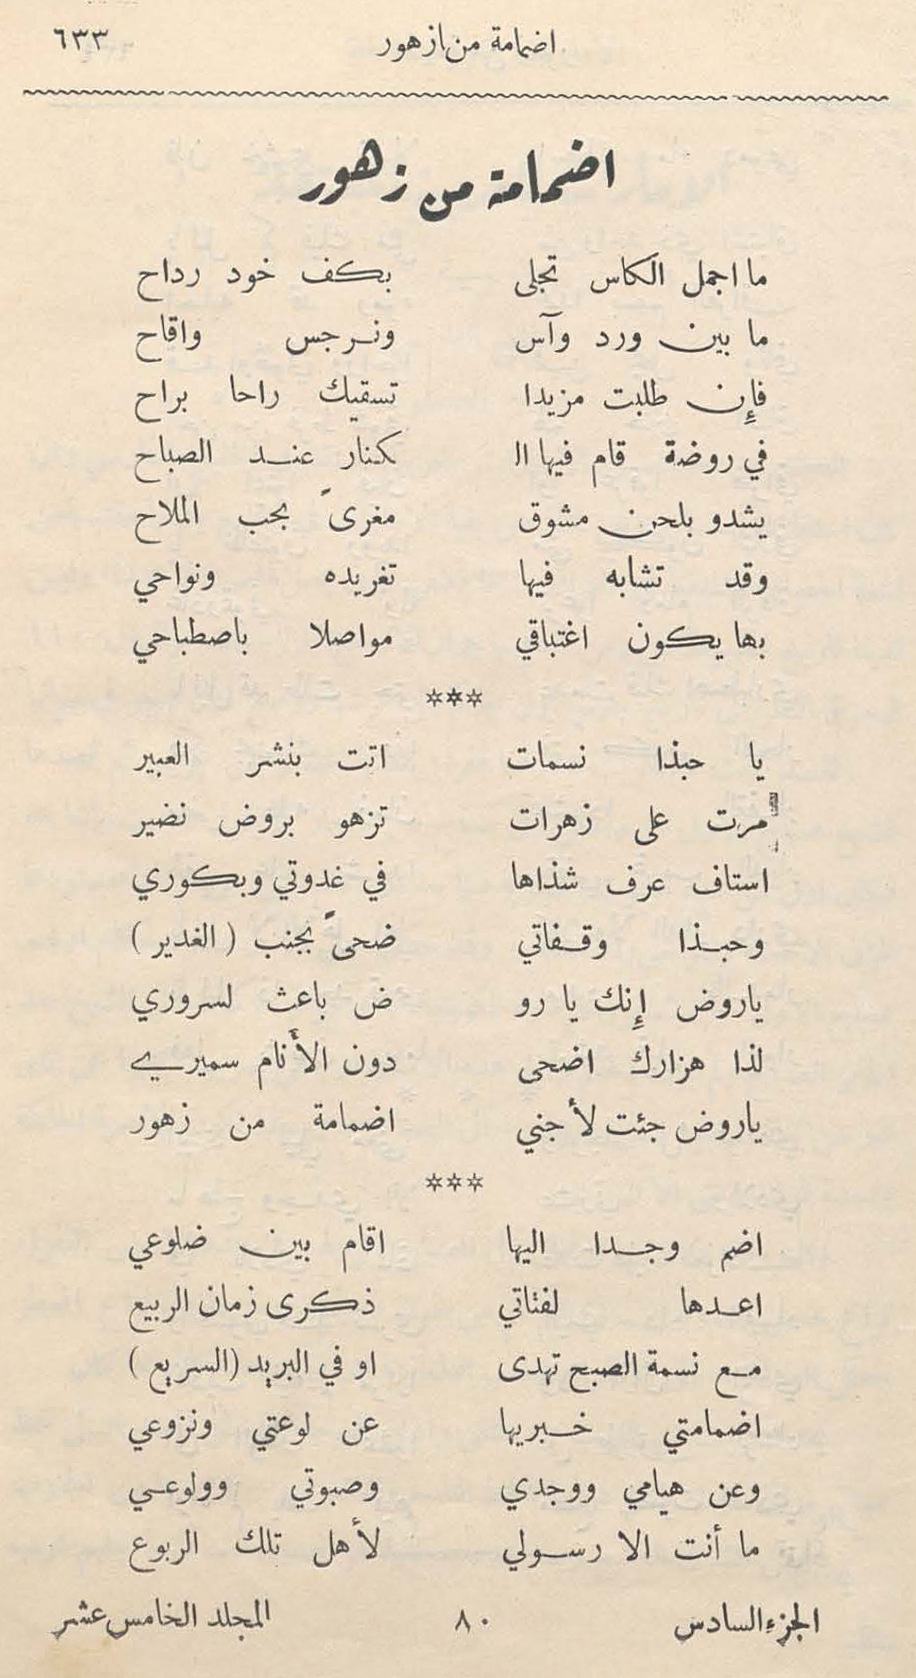 اضمامة من ازهور ٦٣٣
اضمامة من زهور
ما اجمل الكاس تجلى بكف خود رداح
ما بين ورد وآس ونرجس واقاح
فإن طلبت مزيدا تسقيك راحا براح
في روضة قام فيها ال كنار عند الصباح
يشدو بلحن مشوق مغرىً بحب الملاح
وقد تشابه فيها تغريده ونواحي
بها يكون اغتباقي مواصلا باصطباحي
***
يا حبذا نسمات اتت بنشر العبير
مرت على زهرات تزهو بروض نضير
استاف عرف شذاها في غدوتي وبكوري
وحبذا وقفاتي ضحىً بجنب (الغدير)
ياروض إنك يا رو ض باعث لسروري
لذا هزارك اضحى دون الأنام سميري
ياروض جئت لأجني اضمامة من زهور
***
اضم وجدا اليها اقام بين ضلوعي
اعدها لفتاتي ذكرى زمان الربيع
مع نسمة الصبح تهدى او في البريد (السريع)
اضمامتي خبريها عن لوعتي ونزوعي
وعن هيامي ووجدي وصبوتي وولوعي
ما أنت الا رسولي لأهل تلك الربوع
الجزء السادس ٨٠ المجلد الخامس عشر